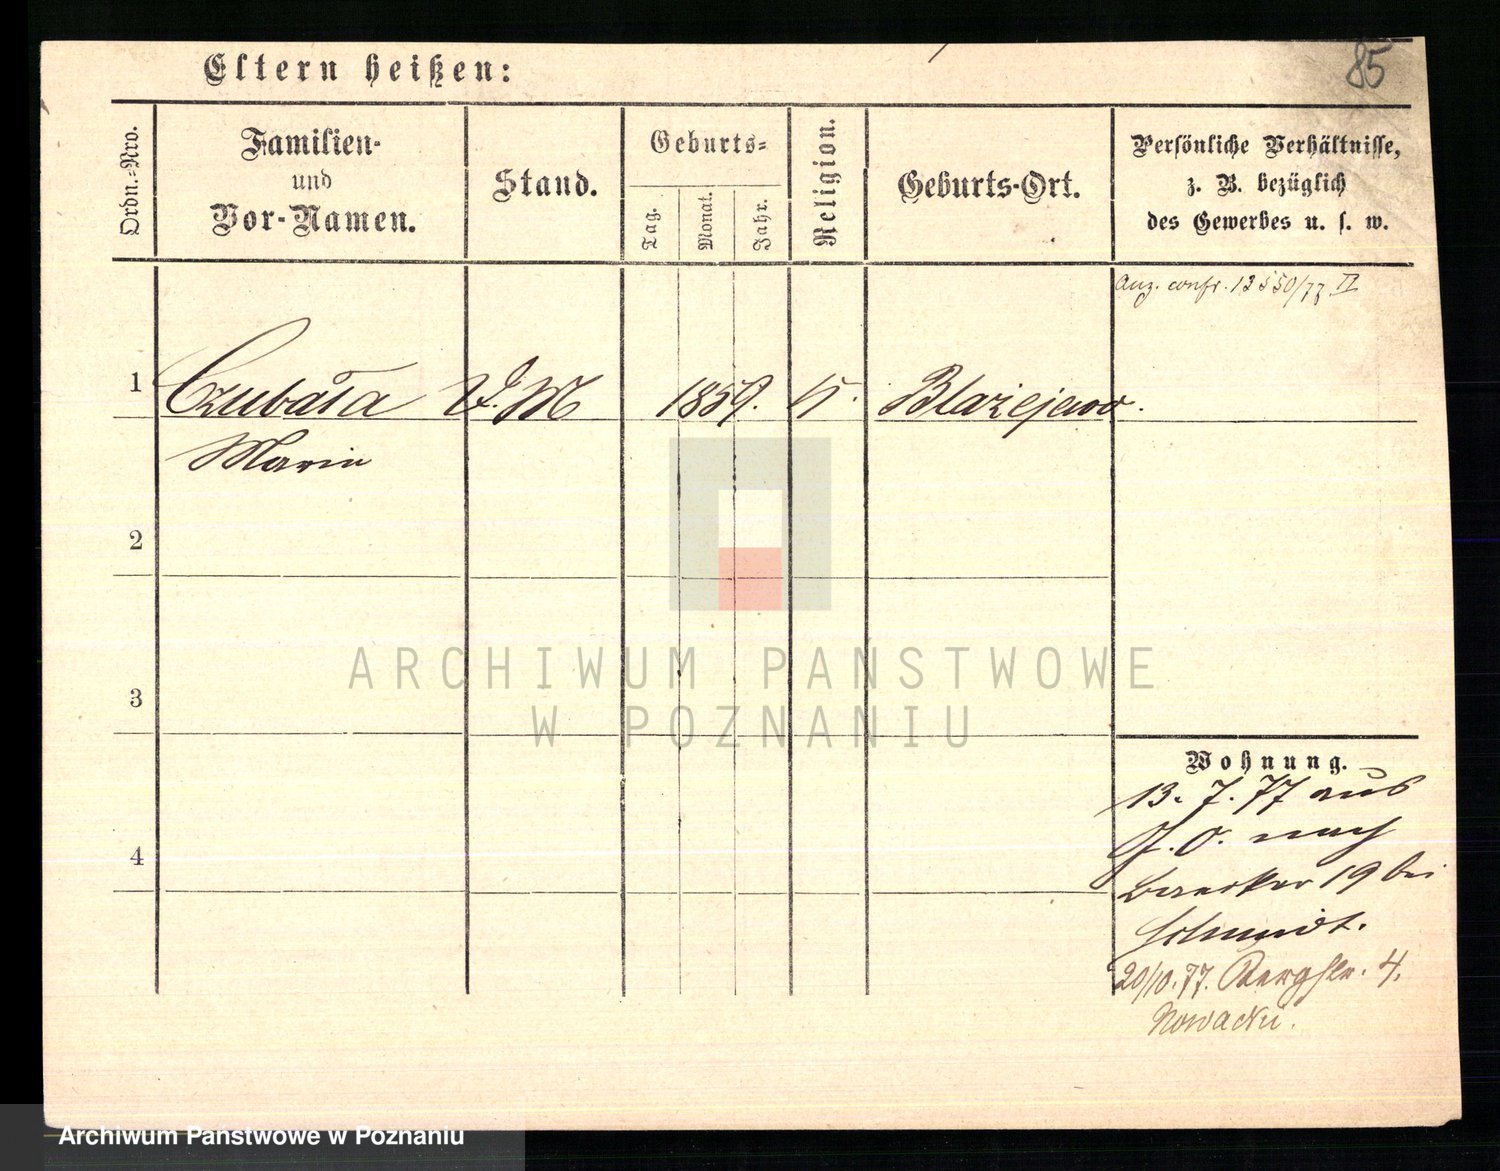 85
Eltern heißen:
Ordn.-Nro.
Familien-
und
Vor-Namen.
Stand.
Geburts-
Tag.
Monat.
Jahr.
Religion.
Geburts-Ort.
Persönliche Verhältnisse,
z. B. bezüglich
des Gewerbes u. s. w.
Anz. confr. 13550/77 II
1 Czubała D. M 1859. k. Błażejewo.
Marie
2
3
4
Wohnung.
13. 7. 77 aus
J. O. nach
19 bei
Schmidt.
20/10. 77. Bergstr. 4.
Nowacki.
ARCHIWUM PAŃSTWOWE
W POZNANIU
Archiwum Państwowe w Poznaniu